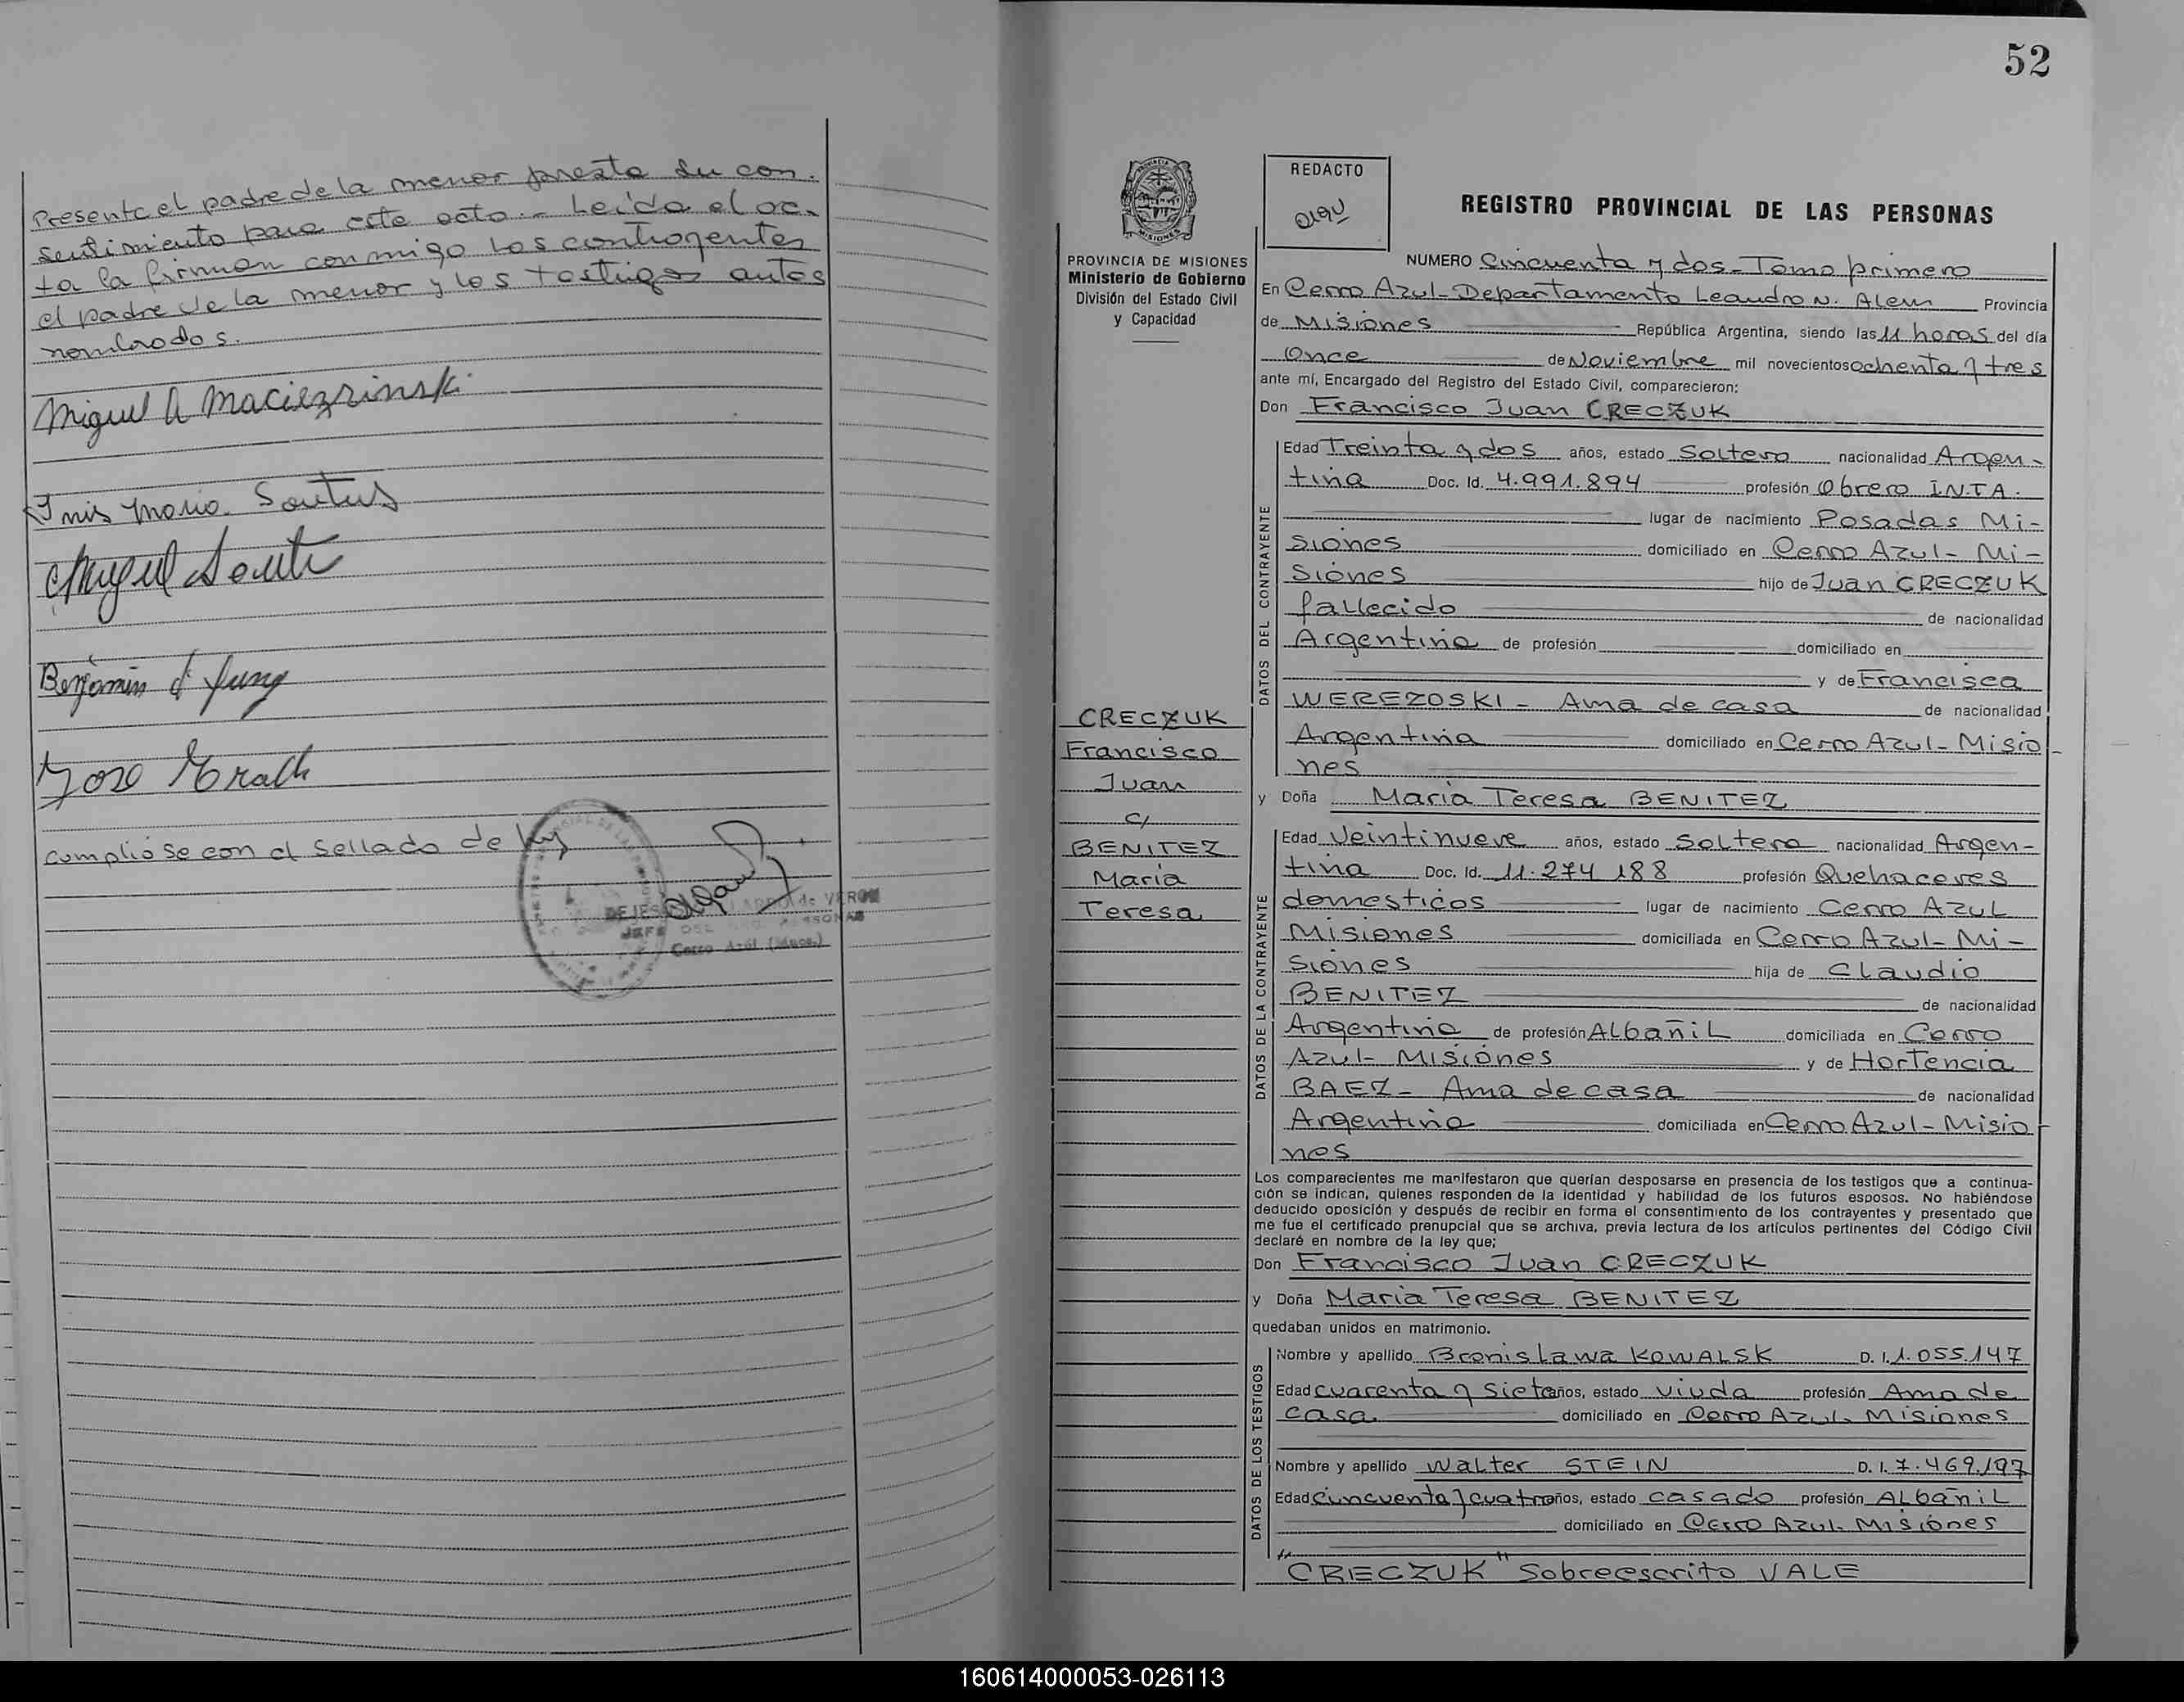 Presente el padre de la menor presta su con-
sentimiento para este acto.- Leida el ac-
ta la firman conmigo los contrayentes
el padre de la menor y los testigos antes
nombrados.
Miguel A Maciezrinski
Inis Maria Santus
Miguel
Benjamin
Jose
cumpliose con el sellado de ley
JEFE DEL
Cerro Azul (Mnes.)
52
PROVINCIA
MISIONES
PROVINCIA DE MISIONES
Ministerio de Gobierno
División del Estado Civil
y Capacidad
CRECZUK
Francisco
Juan
c/
BENITEZ
Maria
Teresa
REDACTO
REGISTRO PROVINCIAL DE LAS PERSONAS
NUMERO Cincuenta y dos- Tomo primero
En Cerro Azul- Departamento Leandro N. Alem Provincia
de Misiones República Argentina, siendo las 11 horas del día
Once de Noviembre mil novecientos ochenta y tres
ante mí, Encargado del Registro del Estado Civil, comparecieron:
Don Francisco Juan CRECZUK
DATOS DEL CONTRAYENTE
Edad Treinta y dos años, estado Soltero nacionalidad Argen-
tina Doc. Id. 4.991.894 profesión Obrero I.N.T.A.
lugar de nacimiento Posadas Mi-
siones domiciliado en Cerro Azul- Mi-
siones hijo de Juan CRECZUK
fallecido de nacionalidad
Argentina de profesión domiciliado en
y de Francisca
WEREZOSKI- Ama de casa de nacionalidad
Argentina domiciliado en Cerro Azul- Misio-
nes
y Doña Maria Teresa BENITEZ
DATOS DE LA CONTRAYENTE
Edad Veintinueve años, estado Soltera nacionalidad Argen-
tina Doc. Id. 11.274 188 profesión Quehaceres
domesticos lugar de nacimiento Cerro Azul
Misiones domiciliada en Cerro Azul- Mi-
siones hija de Claudio
BENITEZ de nacionalidad
Argentino de profesión Albañil domiciliada en Cerro
Azul- Misiones y de Hortencia
BAEZ- Ama de casa de nacionalidad
Argentina domiciliada en Cerro Azul- Misio-
nes
Los comparecientes me manifestaron que querían desposarse en presencia de los testigos que a continua-
ción se indican, quienes responden de la identidad y habilidad de los futuros esposos. No habiéndose
deducido oposición y después de recibir en forma el consentimiento de los contrayentes y presentado que
me fue el certificado prenupcial que se archiva, previa lectura de los artículos pertinentes del Código Civil
declaré en nombre de la ley que;
Don Francisco Juan CRECZUK
y Doña Maria Teresa BENITEZ
quedaban unidos en matrimonio.
DATOS DE LOS TESTIGOS
Nombre y apellido Bronislawa KOWALSK D. I. 1.055.147
Edad cuarenta y siete años, estado viuda profesión Ama de
casa domiciliado en Cerro Azul- Misiones
Nombre y apellido Walter STEIN D. I. 7.469.197
Edad Cincuenta y cuatro años, estado casado profesión Albañil
domiciliado en Cerro Azul- Misiones
"CRECZUK" Sobreescrito VALE
160614000053-026113